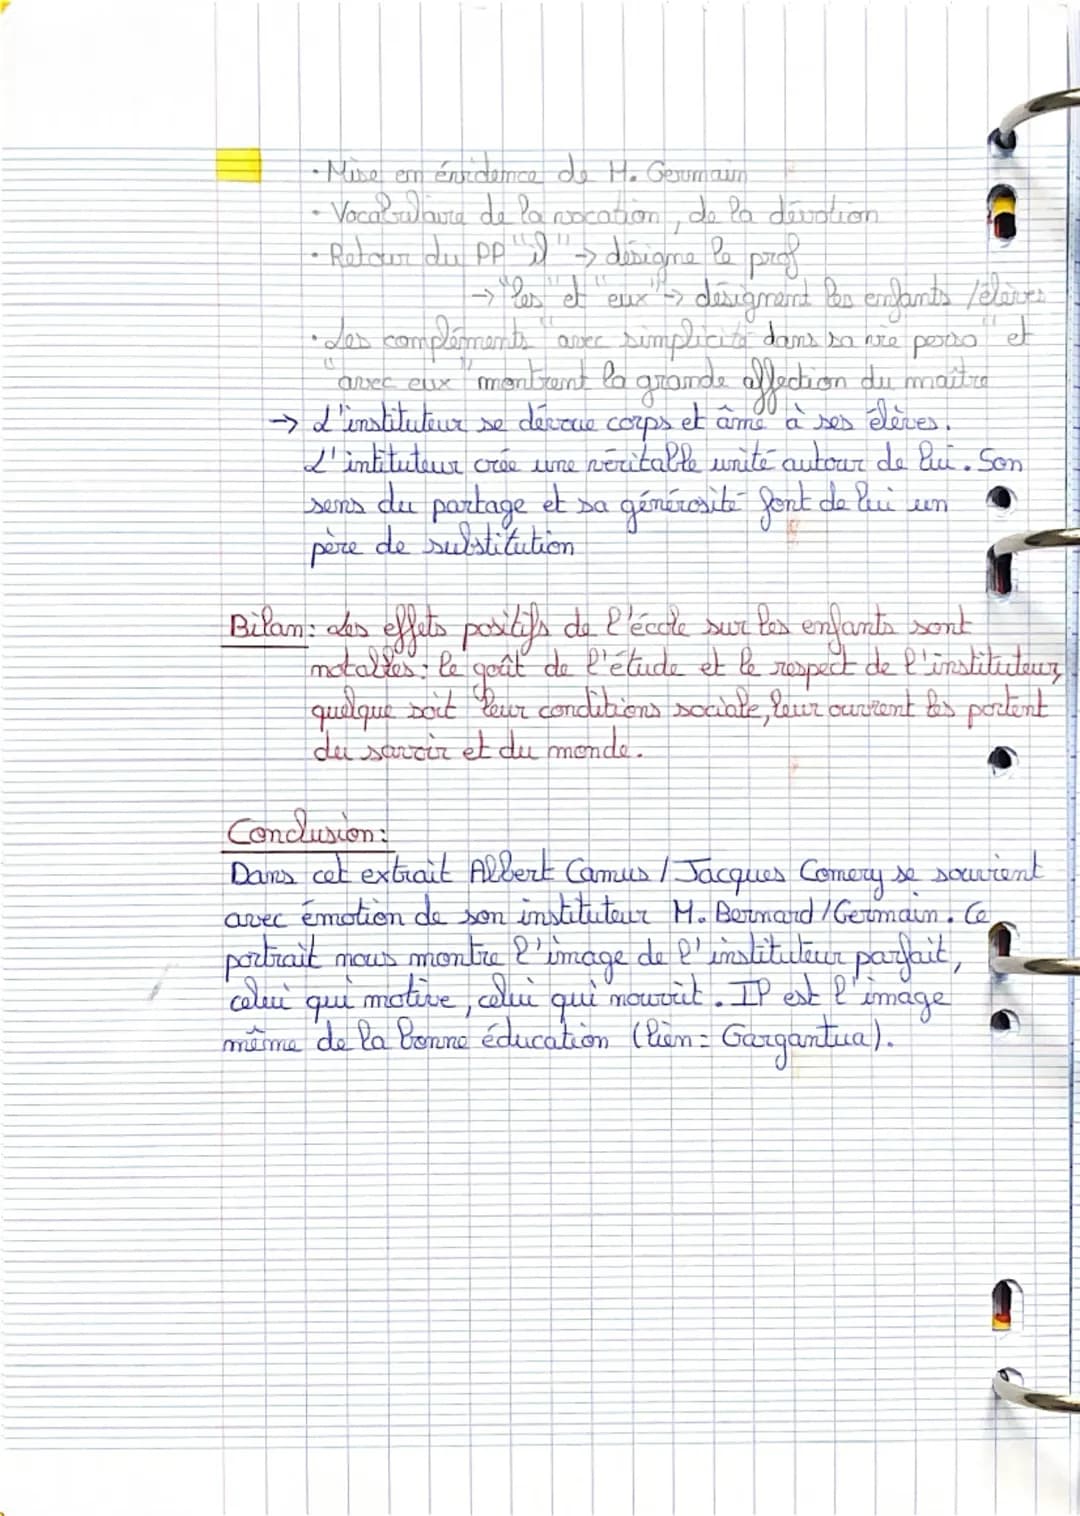 · Mise en évidence de M. Germain
· Vocabulaire de la vocation, de la dévotion
· Retour du PP "il" → désigne le prof
→ "les" et "eux" → désignent les enfants / élèves
· Les compléments "avec simplicité dans sa vie perso" et
"avec eux" montrent la grande affection du maître
→ L'instituteur se dévoue corps et âme à ses élèves.
L'intituteur crée une véritable unité autour de lui. Son
sens du partage et sa générosité font de lui un
père de substitution
Bilan: Les effets positifs de l'école sur les enfants sont
notables: le goût de l'étude et le respect de l'instituteur,
quelque soit leur conditions sociale, leur ouvrent les portent
du savoir et du monde.
Conclusion:
Dans cet extrait Albert Camus / Jacques Comery se souvient
avec émotion de son instituteur M. Bernard / Germain. Ce
portrait nous montre l'image de l'instituteur parfait,
celui qui motive, celui qui nourrit. IP est l'image
même de la bonne éducation (lien = Gargantua).